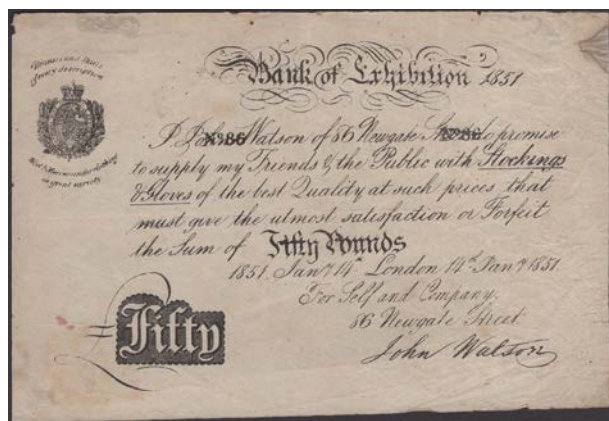 of every description
in great variety
Bank of Exhibition 1851
I John Watson of 86 Newgate Street do promise
No. 86 No. 86
to supply my Friends & the Public with Stockings
& Gloves of the best Quality at such prices that
must give the utmost satisfaction or Forfeit
the Sum of Fifty Pounds
1851 Jany 14th London 14th Jany 1851
For Self and Company,
86 Newgate Street
Fifty
John Watson